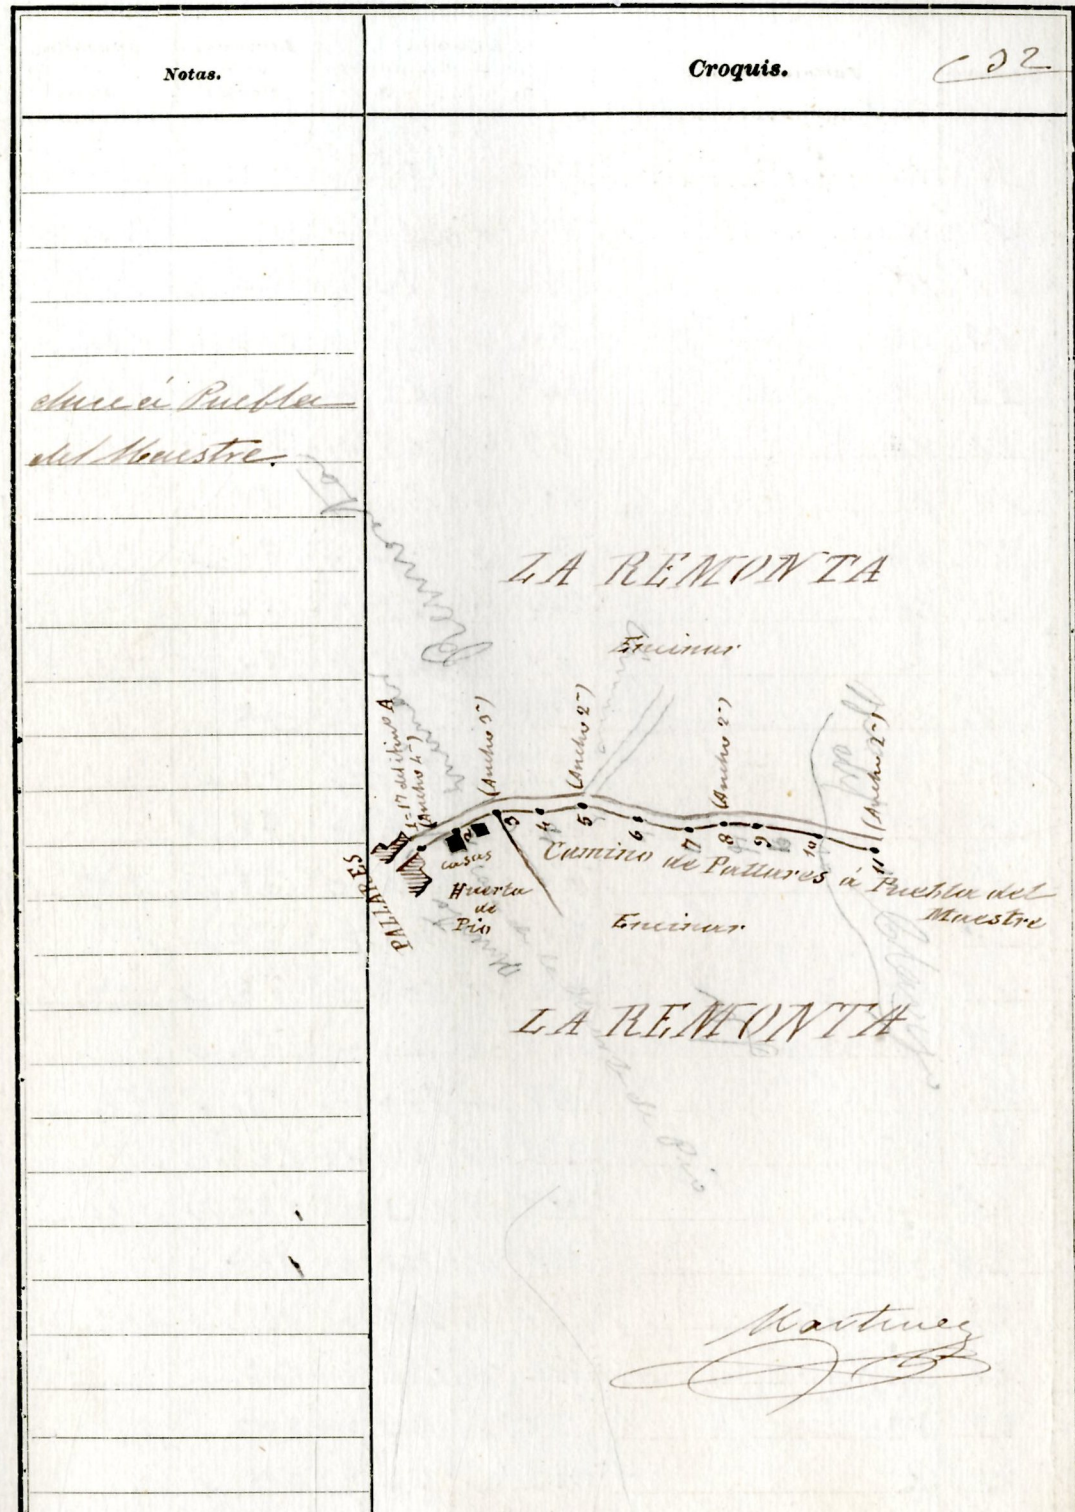 Notas.
Croquis.
32
duce á Puebla
del Maestre.
LA REMONTA
Encinar
1=17 del itin.º A
(Ancho 4ᵐ)
(Ancho 3ᵐ)
(Ancho 2ᵐ)
(Ancho 2ᵐ)
(Ancho 2ᵐ)
2
3
4
5
6
7
8
9
10
11
PALLARES
casas
Camino de Pallares á Puebla del
Maestre
Huerta
de
Pio
Encinar
LA REMONTA
Remonta
Martinez